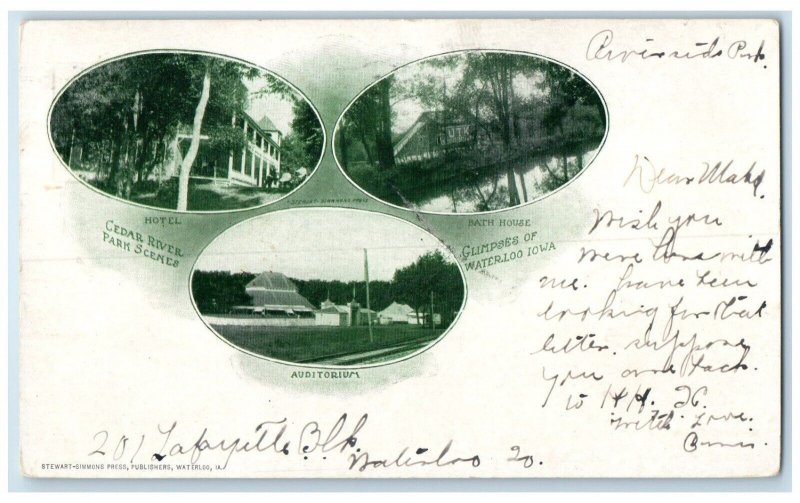 Riverside Park.
HOTEL
CEDAR RIVER
PARK SCENES
STEWART-SIMMONS PRESS
BATH HOUSE
GLIMPSES OF
WATERLOO IOWA
AUDITORIUM
Dear
Wish you
were here with
me. have been
looking for that
letter. suppose
you are back
to
With Love.
201 Lafayette Blk.
Waterloo Io.
STEWART-SIMMONS PRESS, PUBLISHERS, WATERLOO, IA.